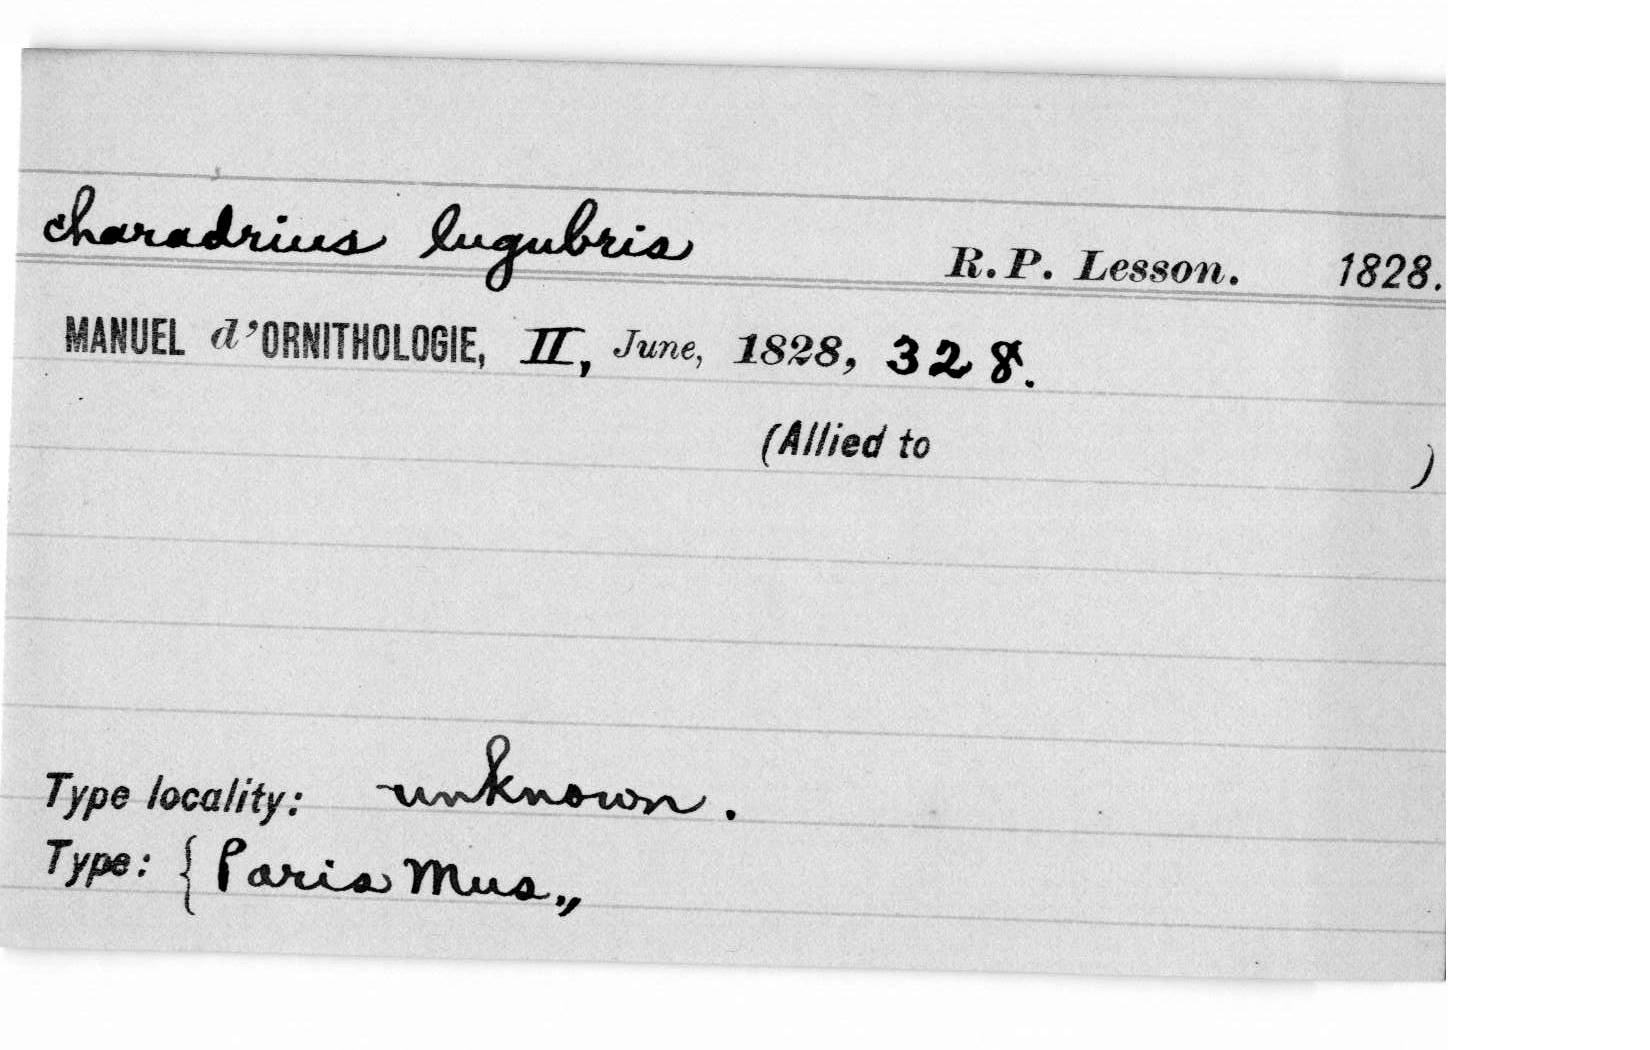 charadrius lugubris R.P. Lesson. 1828.
MANUEL d'ORNITHOLOGIE, II, June, 1828, 328.
(Allied to )
Type locality: unknown.
Type: { Paris Mus.,